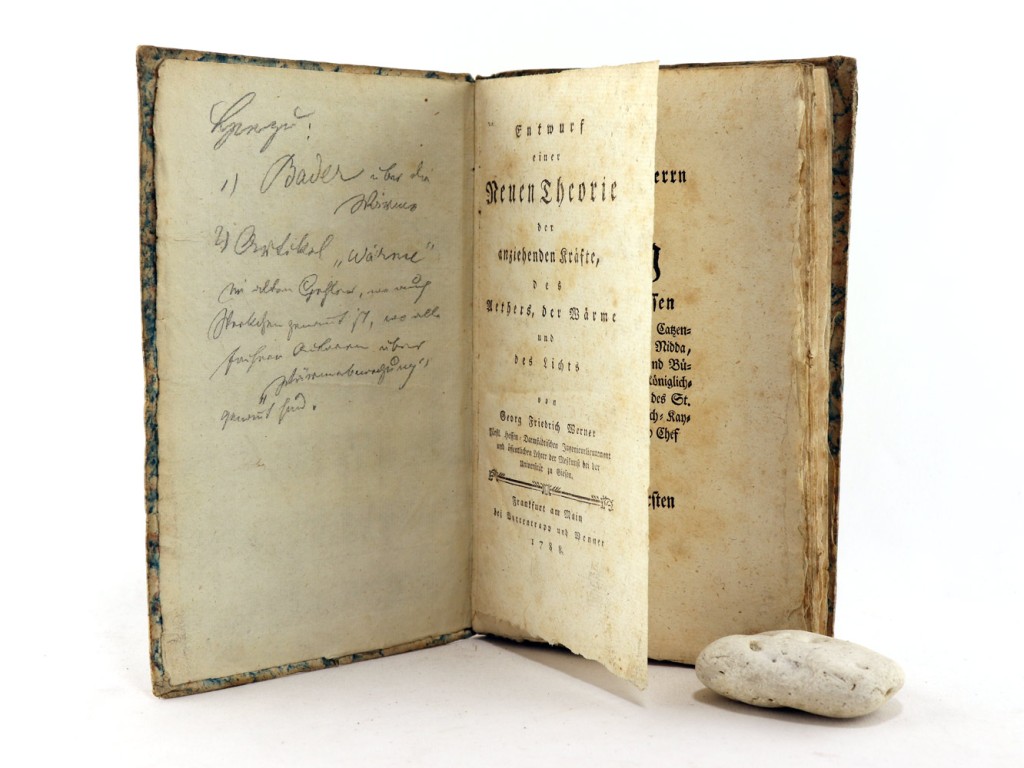 1) Bader über die
Wärme
2) Artikel „Wärme"
im alten Gehler, wo auch
genannt ist, wo alle
über
„Wärmebewegung"
genannt sind.
Entwurf
einer
Neuen Theorie
der
anziehenden Kräfte,
des
Aethers, der Wärme
und
des Lichts
von
Georg Friedrich Werner
Fürstl. Hessen-Darmstädtischen Ingenieurlieutenant
und öffentlichen Lehrer der Meßkunst bei der
Universität zu Giesen.
Frankfurt am Main
bei Varrentrapp und Wenner
1788.
errn
g
sen
Catzen-
Nidda,
nd Bü-
Königlich-
des St.
ch-Kay-
Chef
rsten